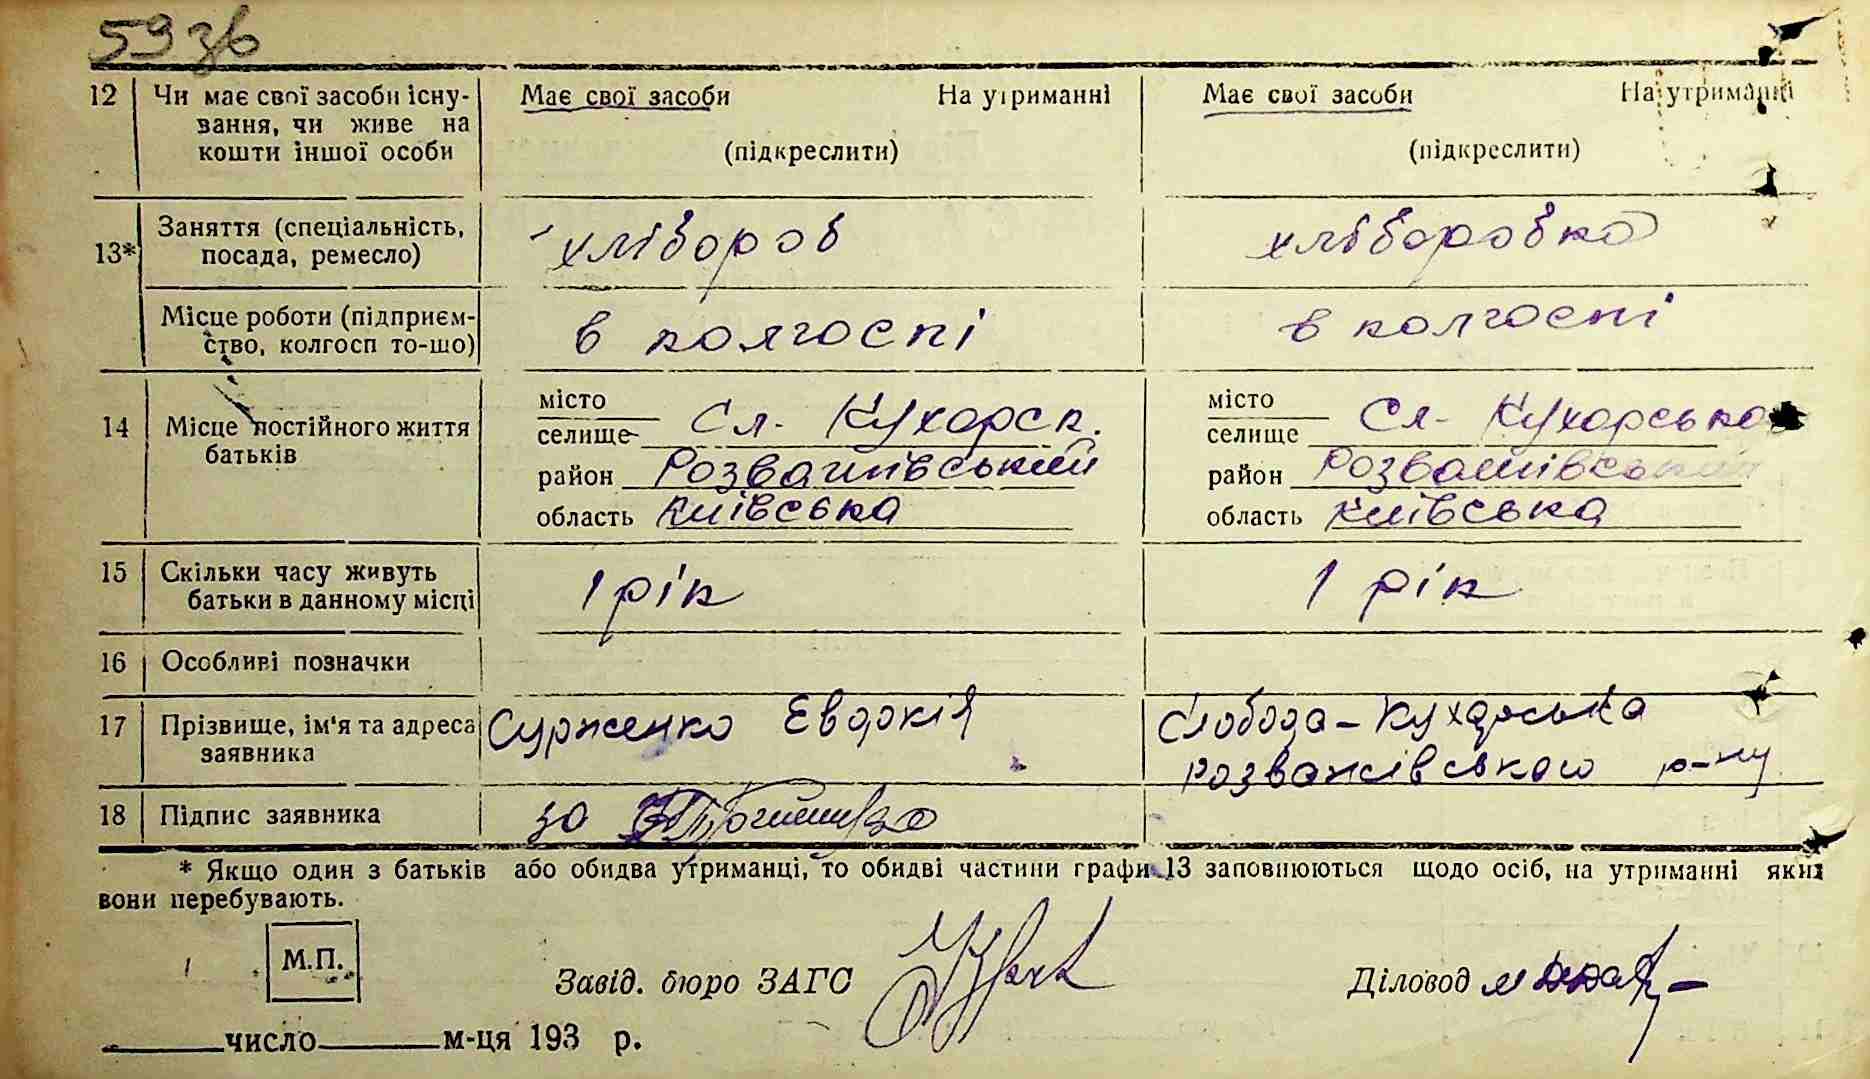 59 зв
12 Чи має свої засоби існу- Має свої засоби На утриманні Має свої засоби На утриманні
вання, чи живе на
кошти іншої особи (підкреслити) (підкреслити)
13* Заняття (спеціальність, хлібороб хліборобка
посада, ремесло)
Місце роботи (підприєм- в колгоспі в колгоспі
ство, колгосп то-що)
14 Місце постійного життя місто Сл. Кухарск. місто Сл. Кухарська
батьків селище селище
район Розважівський район Розважівський
область Київська область Київська
15 Скільки часу живуть 1 рік 1 рік
батьки в данному місці
16 Особливі позначки
17 Прізвище, ім'я та адреса Сурженко Евдокія Слобода-Кухарська
заявника Розважівського р-ну
18 Підпис заявника за
* Якщо один з батьків або обидва утриманці, то обидві частини графи 13 заповнюються щодо осіб, на утриманні яких
вони перебувають.
М.П.
Завід. бюро ЗАГС Діловод
число м-ця 193 р.